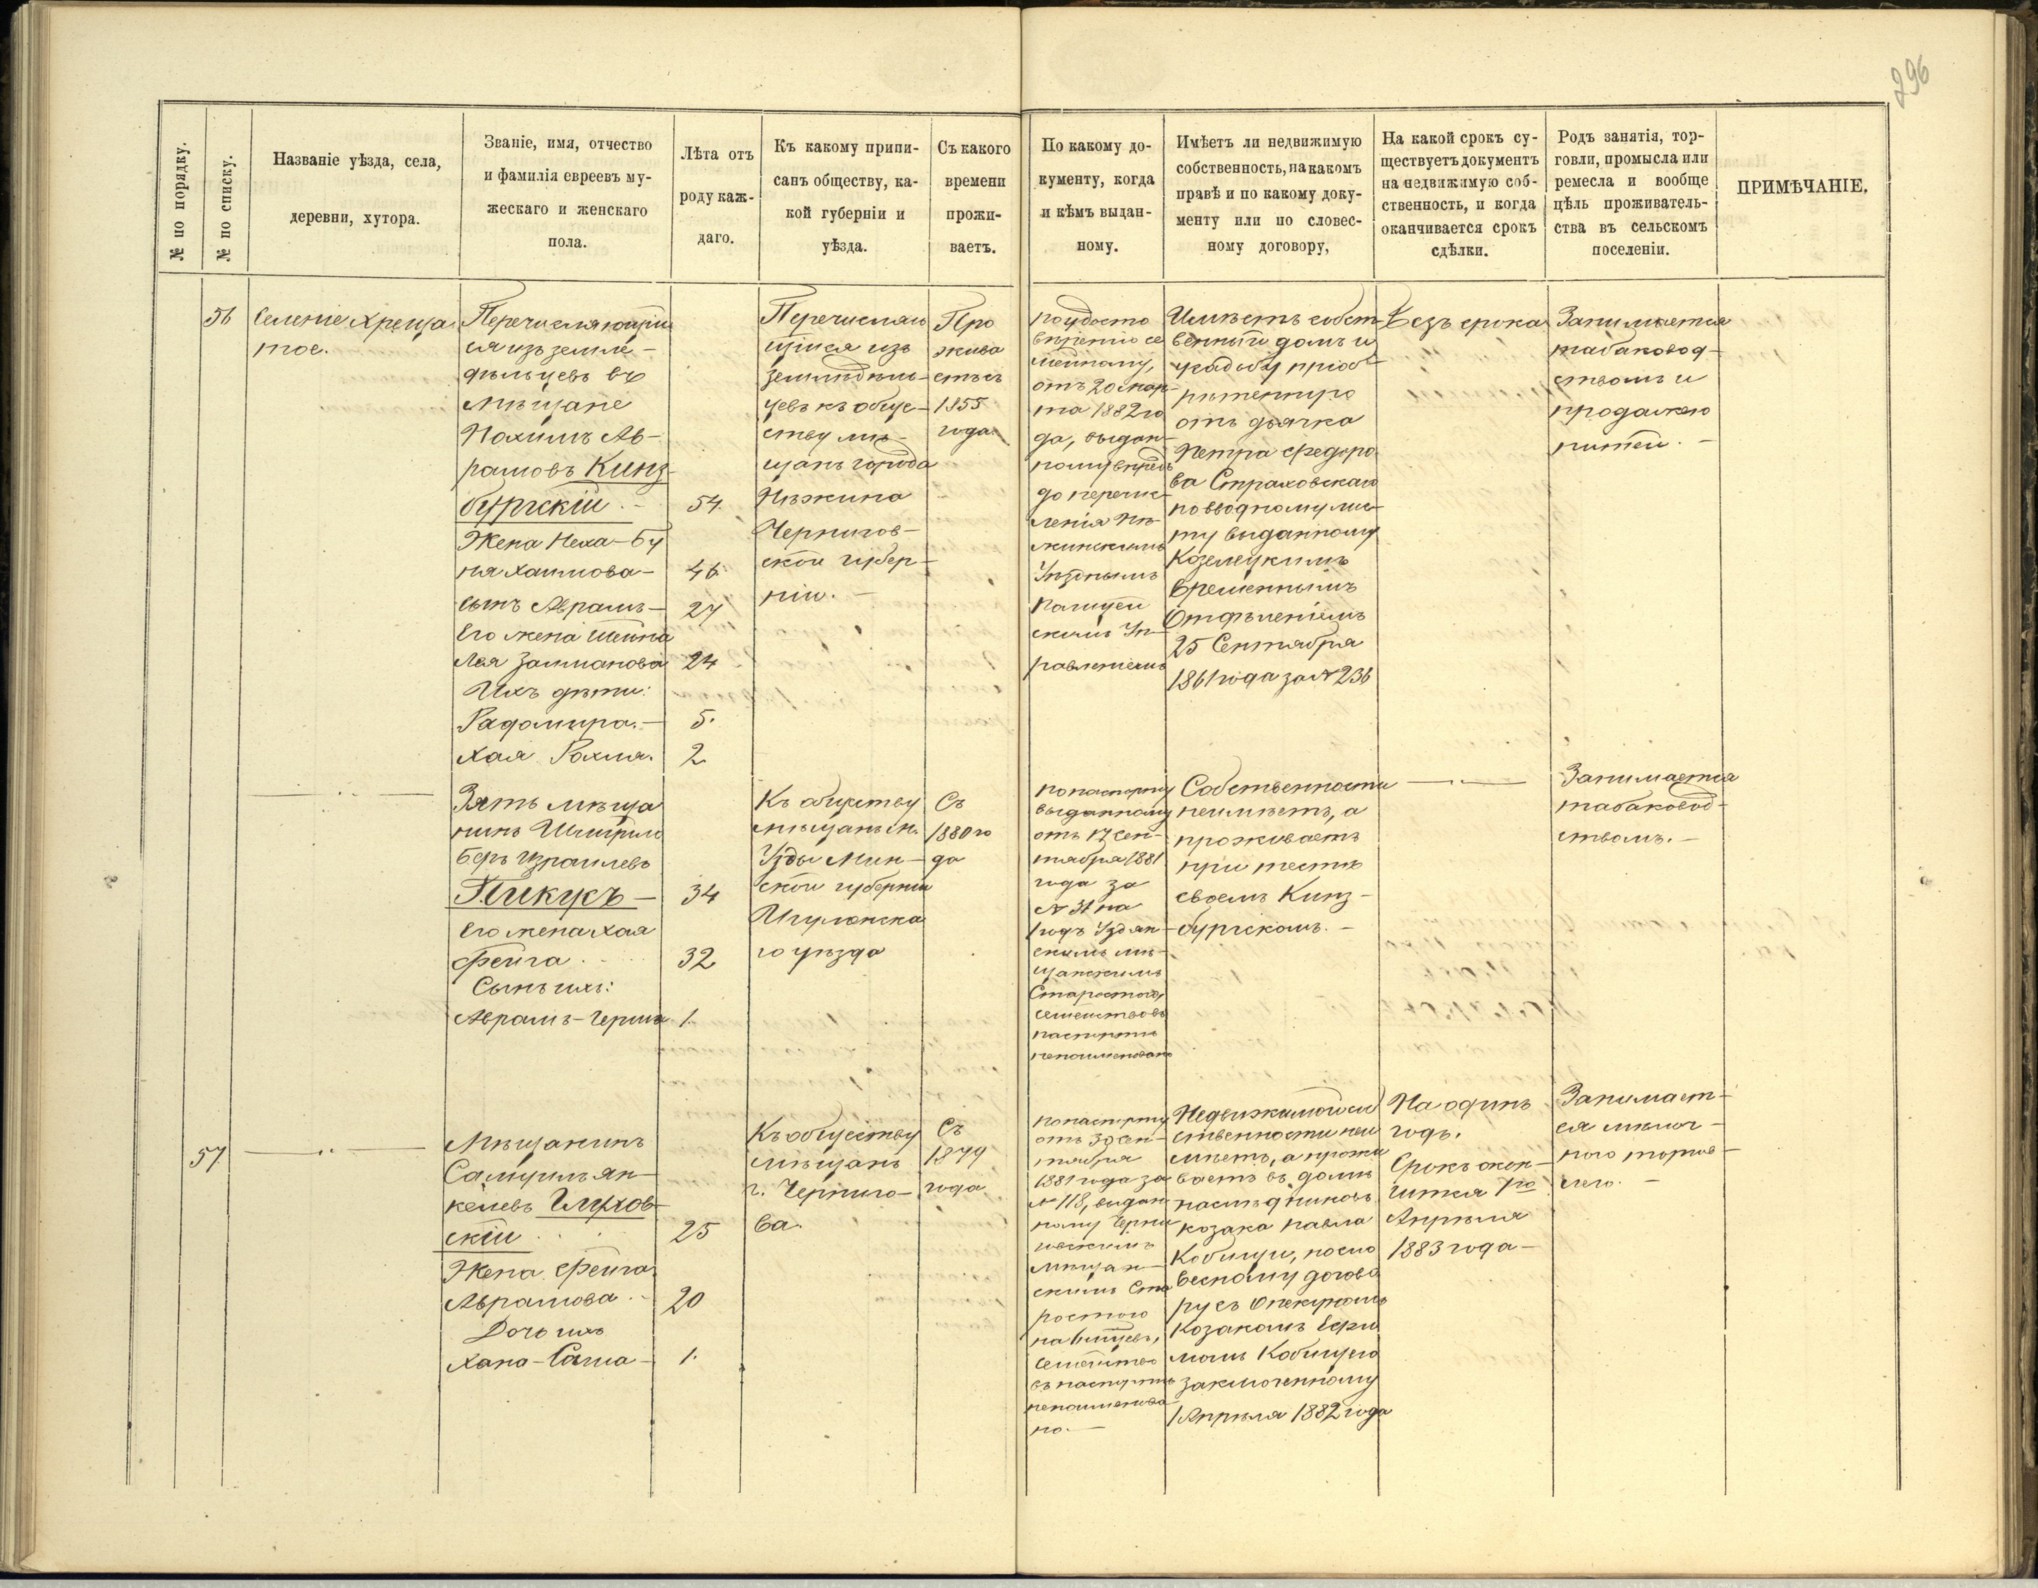 296
№ по порядку.
№ по списку.
Названіе уѣзда, села,
деревни, хутора.
Званіе, имя, отчество
и фамилія евреевъ му-
жескаго и женскаго
пола.
Лѣта отъ
роду каж-
даго.
Къ какому припи-
санъ обществу, ка-
кой губерніи и
уѣзда.
Съ какого
времени
прожи-
ваетъ.
По какому до-
кументу, когда
и кѣмъ выдан-
ному.
Имѣетъ ли недвижимую
собственность, на какомъ
правѣ и по какому доку-
менту или по словес-
ному договору,
На какой срокъ су-
ществуетъ документъ
на недвижимую соб-
ственность, и когда
оканчивается срокъ
сдѣлки.
Родъ занятія, тор-
говли, промысла или
ремесла и вообще
цѣль проживатель-
ства въ сельскомъ
поселеніи.
ПРИМѢЧАНІЕ.
56
Селеніе Хреща
тое.
Перечисляющій
ся изъ земле-
дѣльцевъ въ
мѣщане
Нохимъ Аб-
рамовъ Кинз-
бургскій.
Жена Неха-Бу
ня Хаимова-
сынъ Абрамъ-
Его жена Шейна
Лея Залманова
Ихъ дѣти:
Радомира.-
Хая Рохля.
54.
46
27
24
5.
2
Перечисляю
щійся изъ
земледѣль-
цевъ къ общес-
тву мѣ-
щанъ города
Нѣжина
Чернигов-
ской губер-
ніи.-
Про
жива
етъ съ
1855
года
по удосто
вѣренію се
мейному,
отъ 20 мар-
та 1882 го
да, выдан-
ному впредь
до перечис-
ленія Нѣ-
жинскимъ
Уѣзднымъ
Полицей
скимъ Уп-
равленіемъ
Имѣетъ собст-
венный домъ и
усадьбу пріоб-
рѣтенную
отъ дьячка
Петра Федоро
ва Страховскаго
по вводному лис-
ту выданному
Козелецкимъ
Временнымъ
Отдѣленіемъ
25 Сентября
1861 года за № 236
Безъ срока
Занимается
табаковод-
ствомъ и
продажею
питей.-
Зять мѣща
нинъ Шмѣрло
Беръ Израилевъ
Пикусъ-
Его жена Хая
Фейга
Сынъ ихъ:
Абрамъ-Герша
34
32
1.
Къ обществу
мѣщанъ м.
Узды Мин-
ской губерніи
Игуменска
го уѣзда
Съ
1880 го
да
по паспорту
выданному
отъ 17 сен-
тября 1881
года за
№ 31 на
1 годъ Уздян-
скимъ мѣ-
щанскимъ
Старостою,
семейство въ
паспортѣ
непоименовано
Собственности
неимѣетъ, а
проживаетъ
при тестѣ
своемъ Кинз-
бургскомъ.-
Занимается
табаковод-
ствомъ.-
57
Мѣщанинъ
Самуилъ Ян-
келевъ Глухов-
скій
Жена Фейга
Абрамова.-
Дочь ихъ
Хана-Сима-
25
20
1.
Къ обществу
мѣщанъ
г. Черниго-
ва.
Съ
1879
года
по паспорту
отъ 30 сен-
тября
1881 года за
№ 118, выдан
ному Черни
говскимъ
мѣщан-
скимъ Ста
ростою
на 6 мѣсяцевъ,
семейство
въ паспортѣ
непоименова
но.-
Недвижимой соб
ственности неи
мѣетъ, а прожи
ваетъ въ домѣ
наслѣдниковъ
козака Павла
Кобищи, по сло
весному догово
ру съ Опекуномъ
козакомъ Ефи
момъ Кобищею
заключенному
1 Апрѣля 1882 года
На одинъ
годъ.
Срокъ окон-
чится 1го
Апрѣля
1883 года-
Занимает-
ся мѣлоч-
ною торгов-
лею.-